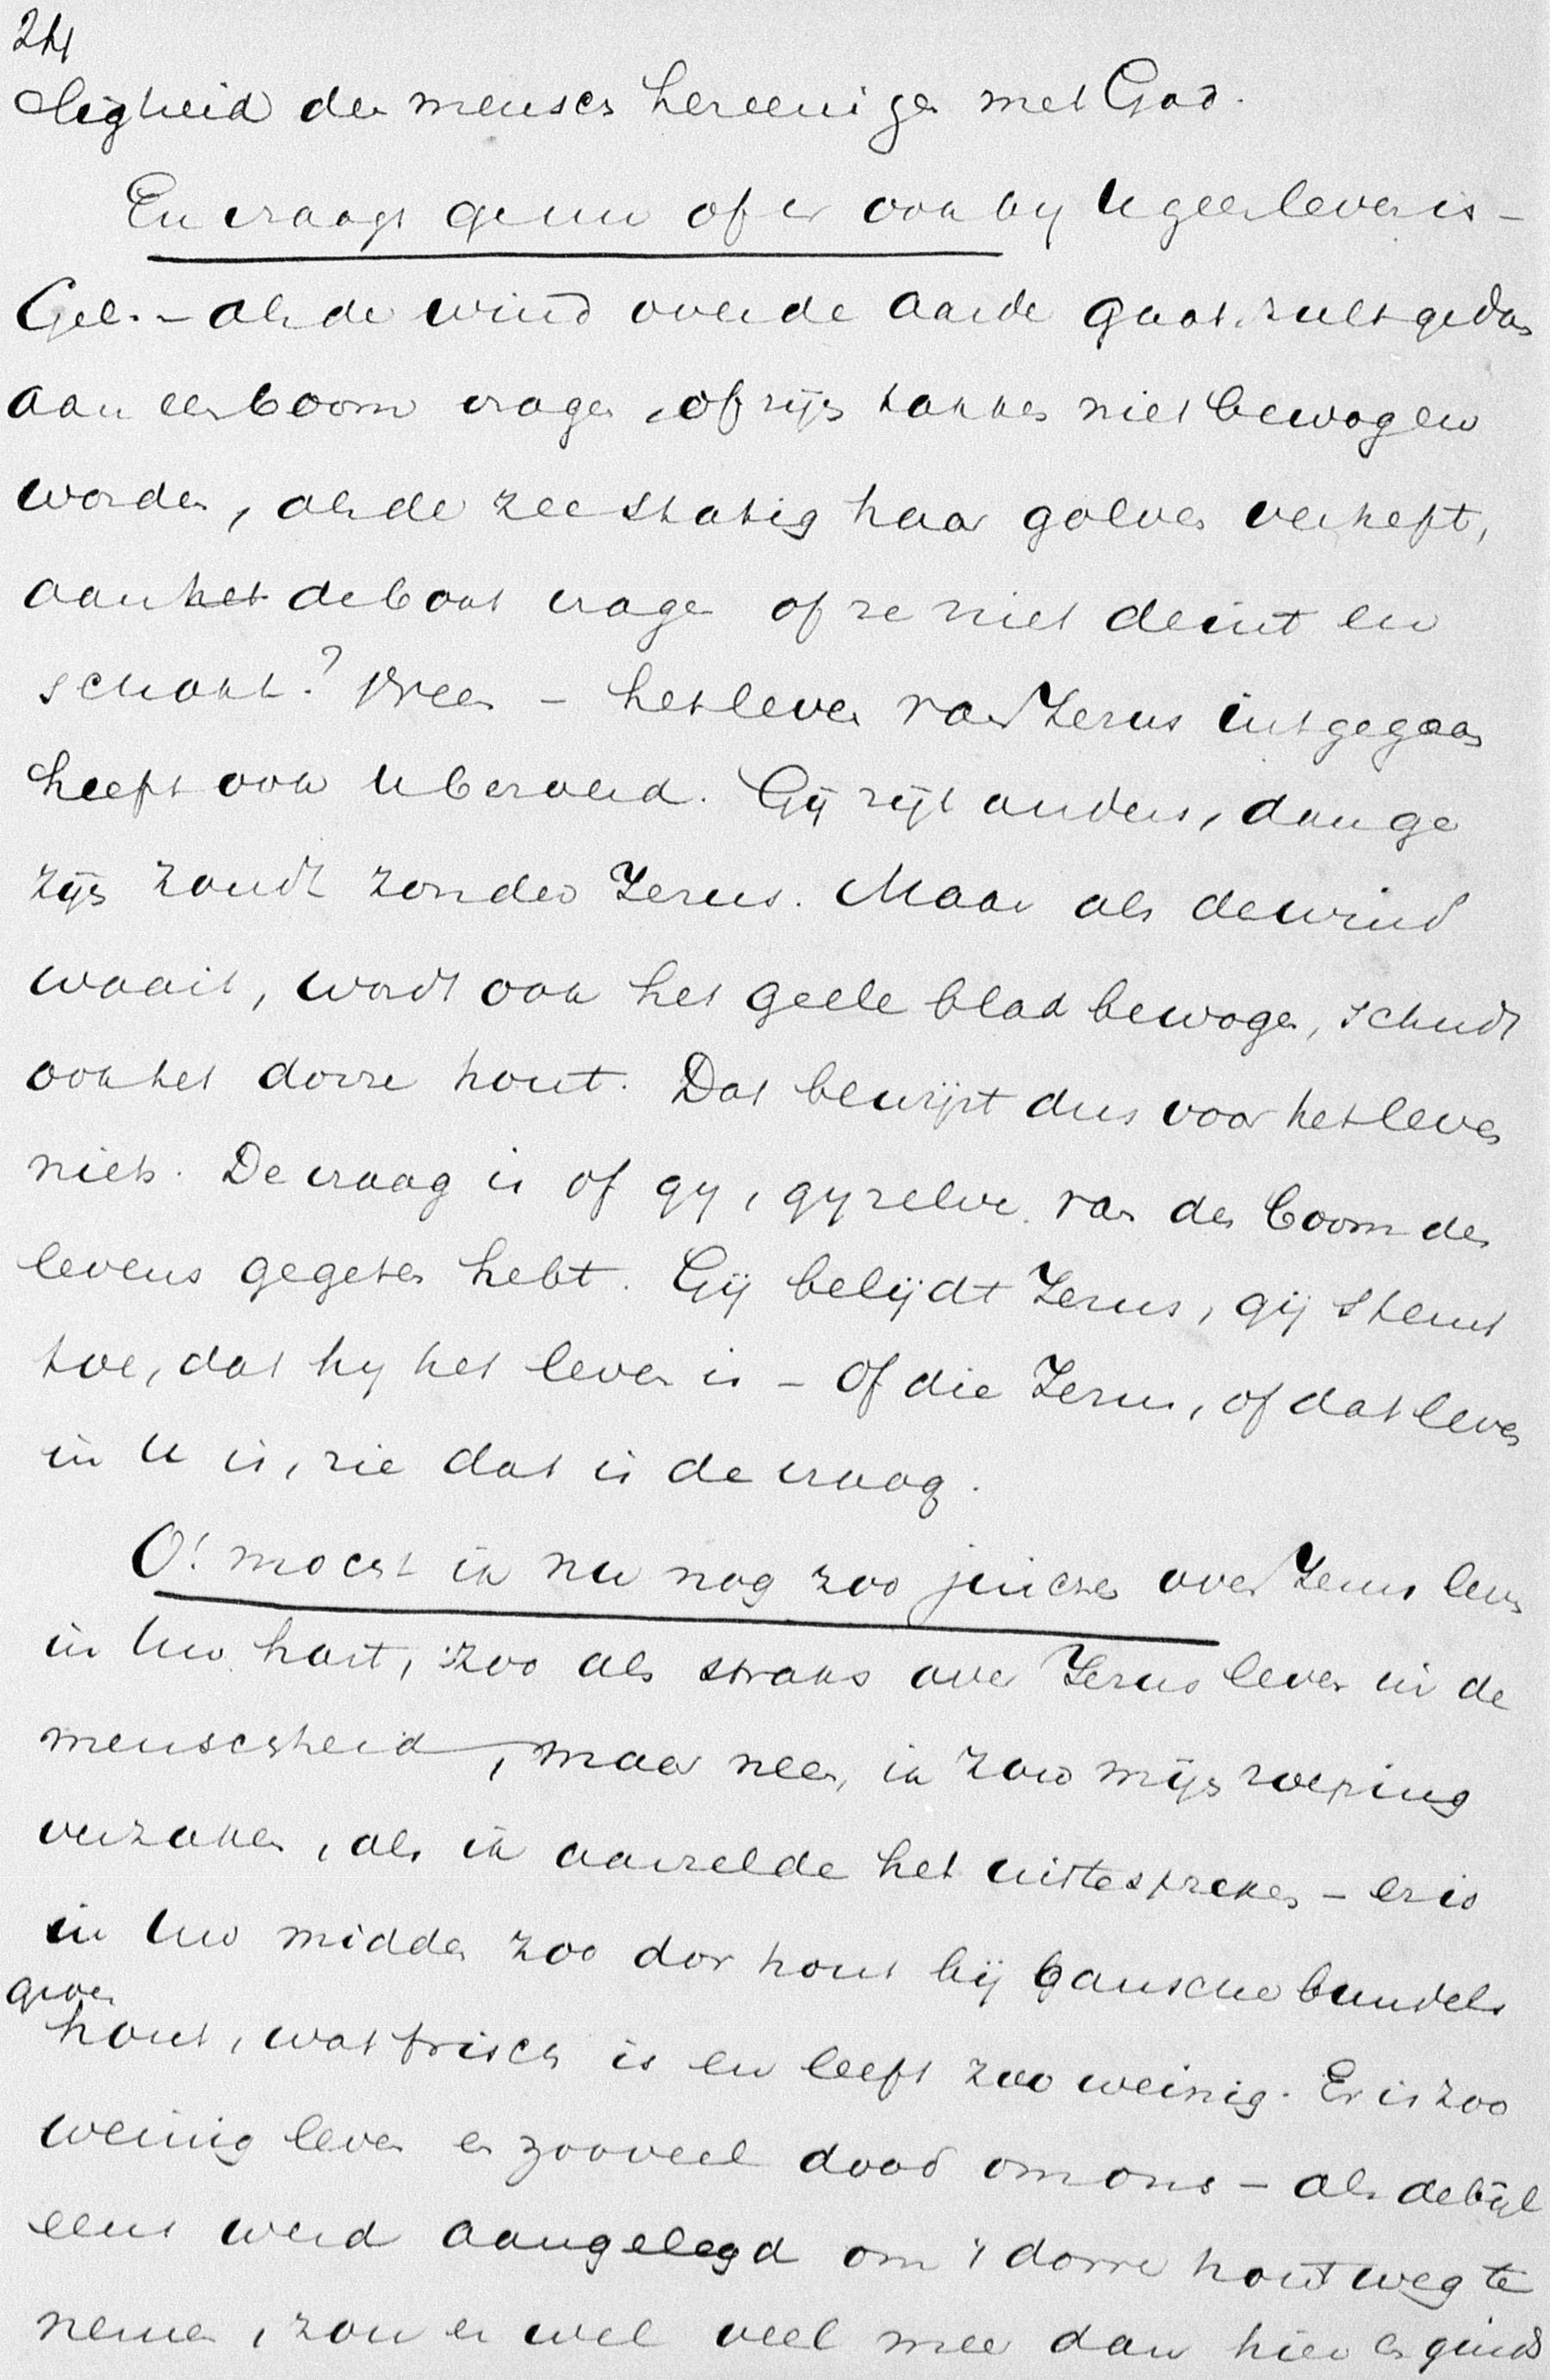 24
digheid der menschen hereenigen met God.
En vraagt ge nu of er ook by U geen leven is –
Gel. – als de wind over de aarde gaat, zult ge dan
aan een boom vragen, of zijn takken niet bewogen
worden, als de zee statig haar golven verheft,
aan het de boot vragen of ze niet deint en
schokt? Neen – het leven van Jezus uitgegaan
heeft ook U beroerd. Gij zijt anders, dan ge
zijn zoudt zonder Jezus. Maar als de wind
waait, wordt ook het geele blad bewogen, schudt
ook het dorre hout. Dat bewijst dus voor het leven
niets. De vraag is of gy, gy zelve van den boom des
levens gegeten hebt. Gij belijdt Jezus, gij stemt
toe, dat hy het leven is – of die Jezus, of dat leven
in U is, zie dat is de vraag.
O! mocht ik nu nog zoo juichen over Jezus leven
in Uw hart, zoo als straks over Jezus leven in de
menschheid, maar neen, ik zou mijn roeping
verzaken, als ik aarzelde het uittespreken – er is
in Uw midden zoo dor hout bij gansche bundels
groen
hout, wat frisch is en leeft zoo weinig. Er is zoo
weinig leven en zooveel dood om ons – als de bijl
eens werd aangelegd om 't dorre hout weg te
nemen, zou er wel veel meer dan hier en ginds